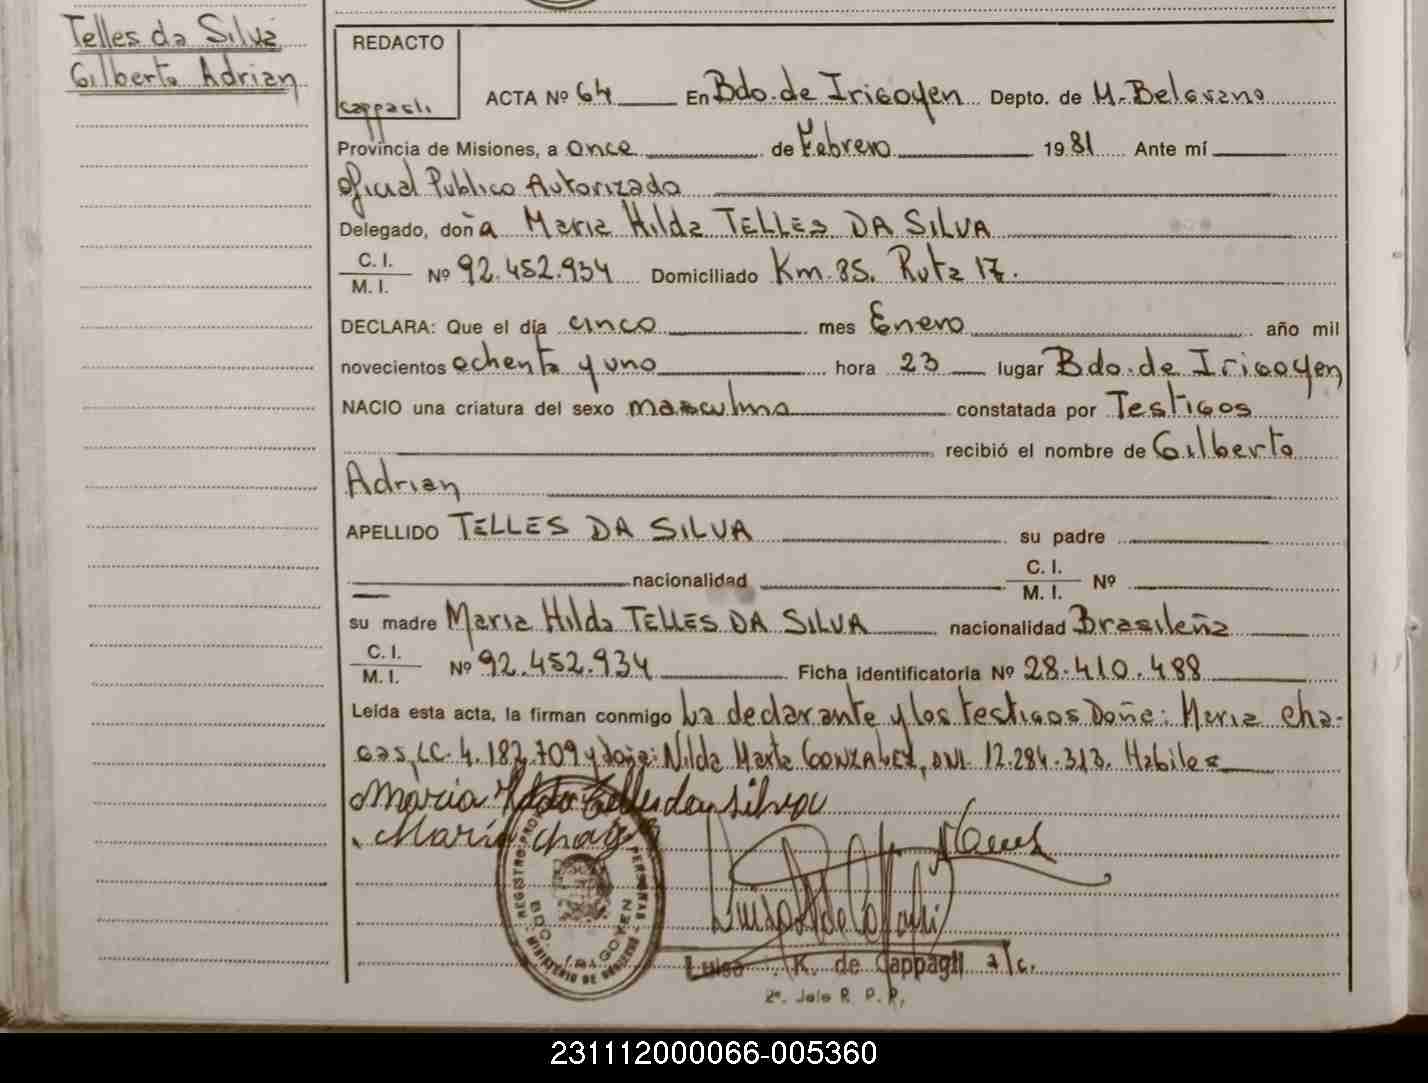 Telles da Silva
Gilberto Adrian
REDACTO
Cappagli
ACTA Nº 64 En Bdo. de Irigoyen Depto. de M. Belgrano
Provincia de Misiones, a once de Febrero 1981 Ante mí
Oficial Publico Autorizado
Delegado, doña Maria Hilda TELLES DA SILVA
C. I.
M. I. Nº 92.452.934 Domiciliado Km. 85. Ruta 17.
DECLARA: Que el día cinco mes Enero año mil
novecientos ochenta y uno hora 23 lugar Bdo. de Irigoyen
NACIO una criatura del sexo masculino constatada por Testigos
recibió el nombre de Gilberto
Adrian
APELLIDO TELLES DA SILVA su padre
nacionalidad C. I.
M. I. Nº
su madre Maria Hilda TELLES DA SILVA nacionalidad Brasileña
C. I.
M. I. Nº 92.452.934 Ficha identificatoria Nº 28.410.488
Leída esta acta, la firman conmigo La declarante y los testigos Doña: Maria Cha-
gas, LC. 4.182.709 y doña: Nilda Marta GONZALEZ, DNI. 12.284.313. Habiles
Maria Hilda Telles da Silva
Maria Chagas
REGISTRO PERSONAS
BDO. IRIGOYEN
MINISTERIO DE GOBIERNO
Luisa K. de Cappagli a/c.
2º. Jefe R. P. P.
231112000066-005360